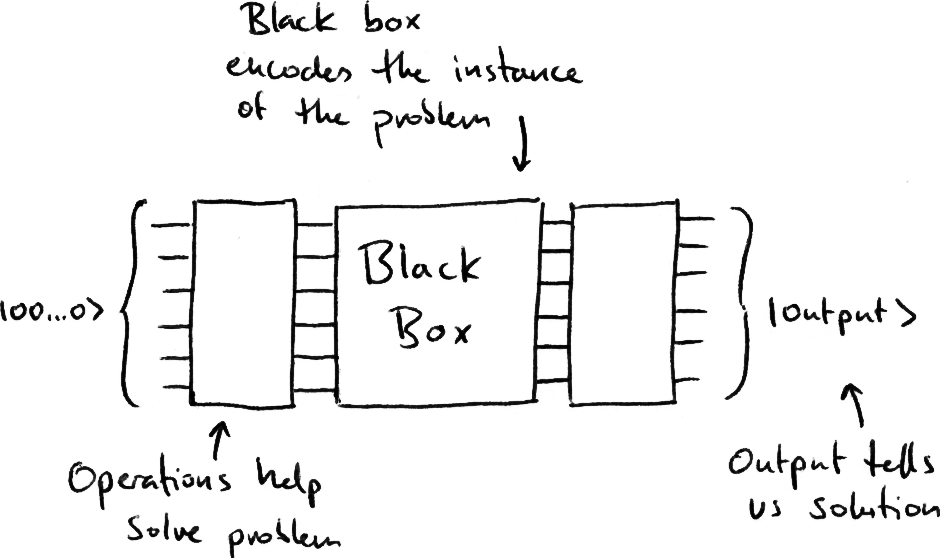 Black box
encodes the instance
of the problem
|00...0>
Black
Box
|Output>
Operations help
solve problem
Output tells
us solution